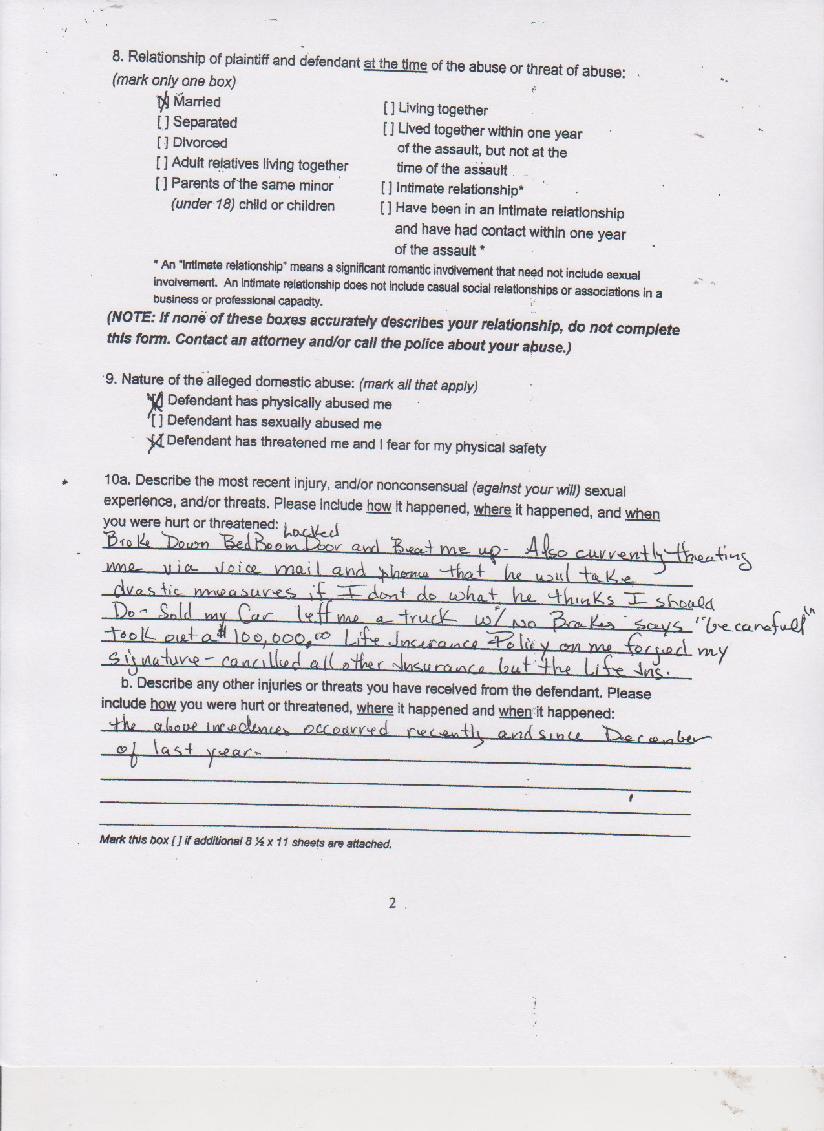 8. Relationship of plaintiff and defendant at the time of the abuse or threat of abuse:
(mark only one box)
[X] Married
[ ] Separated
[ ] Divorced
[ ] Adult relatives living together
[ ] Parents of the same minor
(under 18) child or children
[ ] Living together
[ ] Lived together within one year
of the assault, but not at the
time of the assault
[ ] Intimate relationship*
[ ] Have been in an intimate relationship
and have had contact within one year
of the assault *
* An "intimate relationship" means a significant romantic involvement that need not include sexual
involvement. An intimate relationship does not include casual social relationships or associations in a
business or professional capacity.
(NOTE: If none of these boxes accurately describes your relationship, do not complete
this form. Contact an attorney and/or call the police about your abuse.)
9. Nature of the alleged domestic abuse: (mark all that apply)
[X] Defendant has physically abused me
[ ] Defendant has sexually abused me
[X] Defendant has threatened me and I fear for my physical safety
10a. Describe the most recent injury, and/or nonconsensual (against your will) sexual
experience, and/or threats. Please include how it happened, where it happened, and when
you were hurt or threatened: Locked
Broke Down BedRoom Door and Beat me up - Also currently threating
me via voice mail and phone that he will take
drastic measures if I dont do what he thinks I should
Do - Sold my Car left me a truck w/ No Brakes says "be carefull"
took out a $100,000.00 Life Insurance Policy on me forged my
signature - cancilled all other Insurance but the Life Ins.
b. Describe any other injuries or threats you have received from the defendant. Please
include how you were hurt or threatened, where it happened and when it happened:
the above incedences occourred recently and since December
of last year-
Mark this box [ ] if additional 8 ½ x 11 sheets are attached.
2